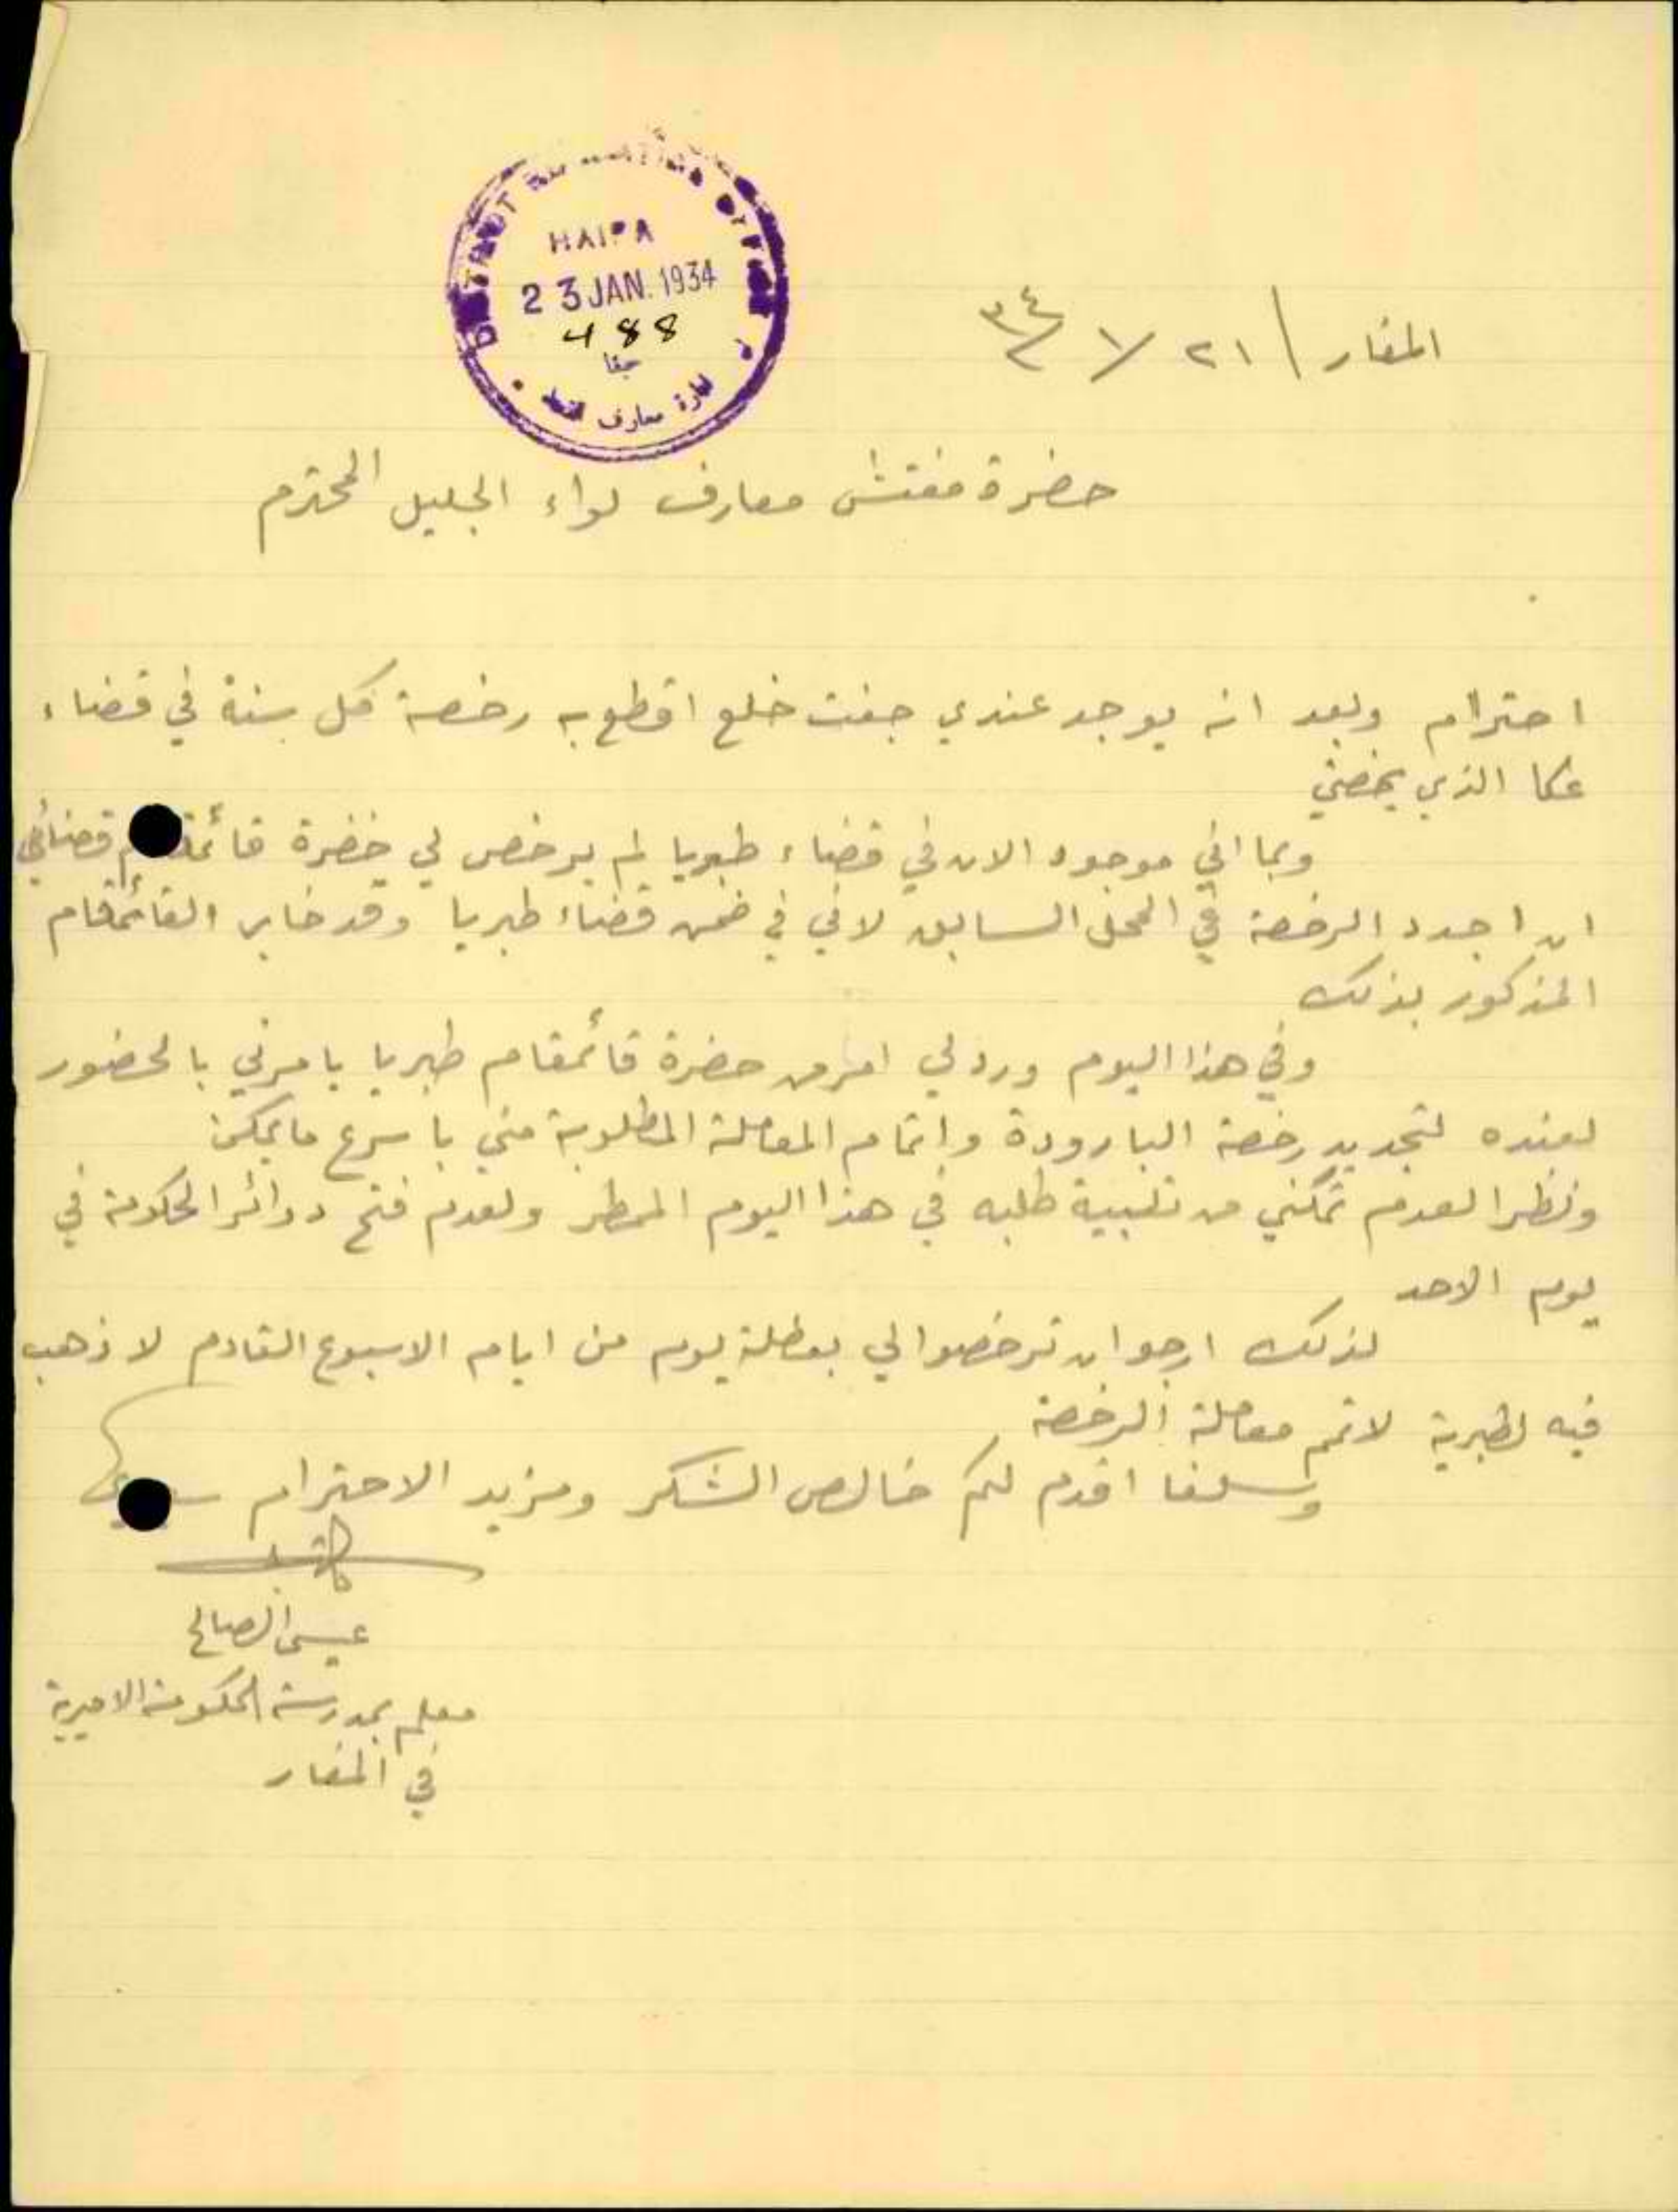 DISTRICT OFFICE
HAIFA
23 JAN. 1934
488
حيفا
ادارة معارف
المغار / ٢١ / ١ / ٣٤
حضرة مفتش معارف لواء الجليل المحترم
احترام وبعد انه يوجد عندي جفت خلع اقطع به رخصة كل سنة في قضاء
عكا الذي يخصني
وبما اني موجود الان في قضاء طبريا لم يرخص لي حضرة قائمقام قضائي
ان اجدد الرخصة في المحل السابق لاني في ضمن قضاء طبريا وقد خابر القائمقام
المذكور بذلك
وفي هذا اليوم ورد لي امر من حضرة قائمقام طبريا يامرني بالحضور
لعنده لتجديد رخصة البارودة واتمام المعاملة المطلوبة مني باسرع ما يمكن
ونظرا لعدم تمكني من تلبية طلبه في هذا اليوم الممطر ولعدم فتح دوائر الحكومة في
يوم الاحد
لذلك ارجو ان ترخصوا لي بعطلة يوم من ايام الاسبوع القادم لاذهب
فيه لطبرية لاتمم معاملة الرخصة
وسلفا اقدم لكم خالص الشكر ومزيد الاحترام سيدي
كاتبه
عيسى الصالح
معلم بمدرسة الحكومة الاميرية
في المغار